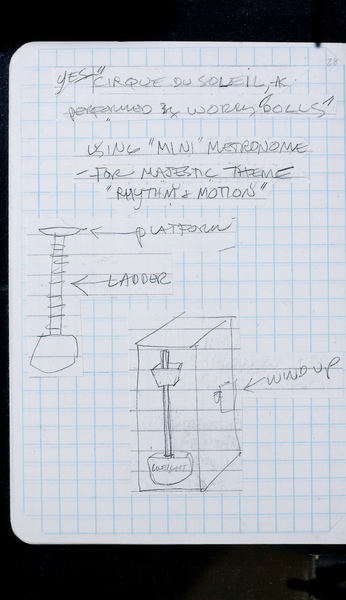 28
YES "CIRQUE DU SOLEIL, AS
PERFORMED BY WORRY "DOLLS"
USING "MINI" METRONOME
- FOR MAJESTIC THEME
"RHYTHM & MOTION"
PLATFORM
LADDER
WIND UP
WEIGHT